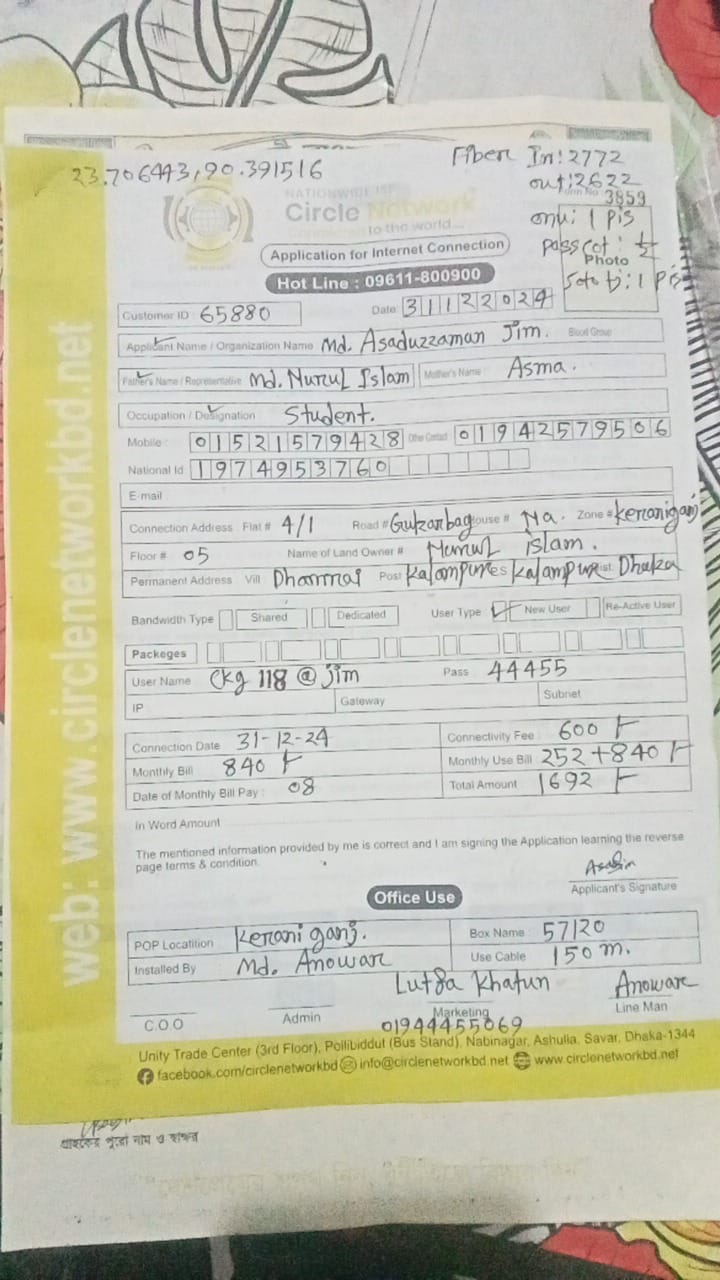 23.706443,90.391516
Fiber In: 2772
out: 2622
Form No 3859
NATIONWIDE ISP
Circle Network
to the world...
onu: 1 pis
Application for Internet Connection
Photo
Hot Line : 09611-800900
Customer ID 65880 Date 31122024
Applicant Name / Organization Name Md. Asaduzzaman Jim. Blood Group
Father's Name / Representative Md. Nurul Islam Mother's Name Asma.
Occupation / Designation Student.
Mobile : 01521579428 Other Contact 01942579506
National Id 1974953760
E-mail
Connection Address Flat # 4/1 Road # House # Na. Zone # Keraniganj
Floor # 05 Name of Land Owner # Nurul islam.
Permanent Address Vill Dhamrai Post Dhaka
Bandwidth Type Shared Dedicated User Type New User Re-Active User
Packeges
User Name Ckg 118 @ jim Pass 44455
IP Gateway Subnet
Connection Date 31-12-24 Connectivity Fee 600
Monthly Bill 840 Monthly Use Bill 252+840
Date of Monthly Bill Pay : 08 Total Amount 1692
In Word Amount
The mentioned information provided by me is correct and I am signing the Application learning the reverse
page terms & condition.
Applicant's Signature
Office Use
POP Locatition Kerani ganj. Box Name 57/20
Installed By Md. Anowar Use Cable 150 m.
Lutfa Khatun Anowar
C.O.O Admin Marketing Line Man
01944455069
Unity Trade Center (3rd Floor), Pollibiddut (Bus Stand), Nabinagar, Ashulia, Savar, Dhaka-1344
facebook.com/circlenetworkbd info@circlenetworkbd.net www.circlenetworkbd.net
web: www.circlenetworkbd.net
গ্রাহকের পুরো নাম ও স্বাক্ষর